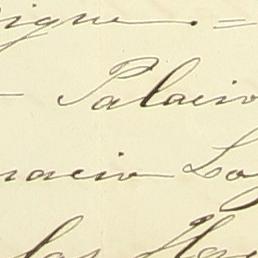 igne. =
— Palacio
nacio Lo
las Ha